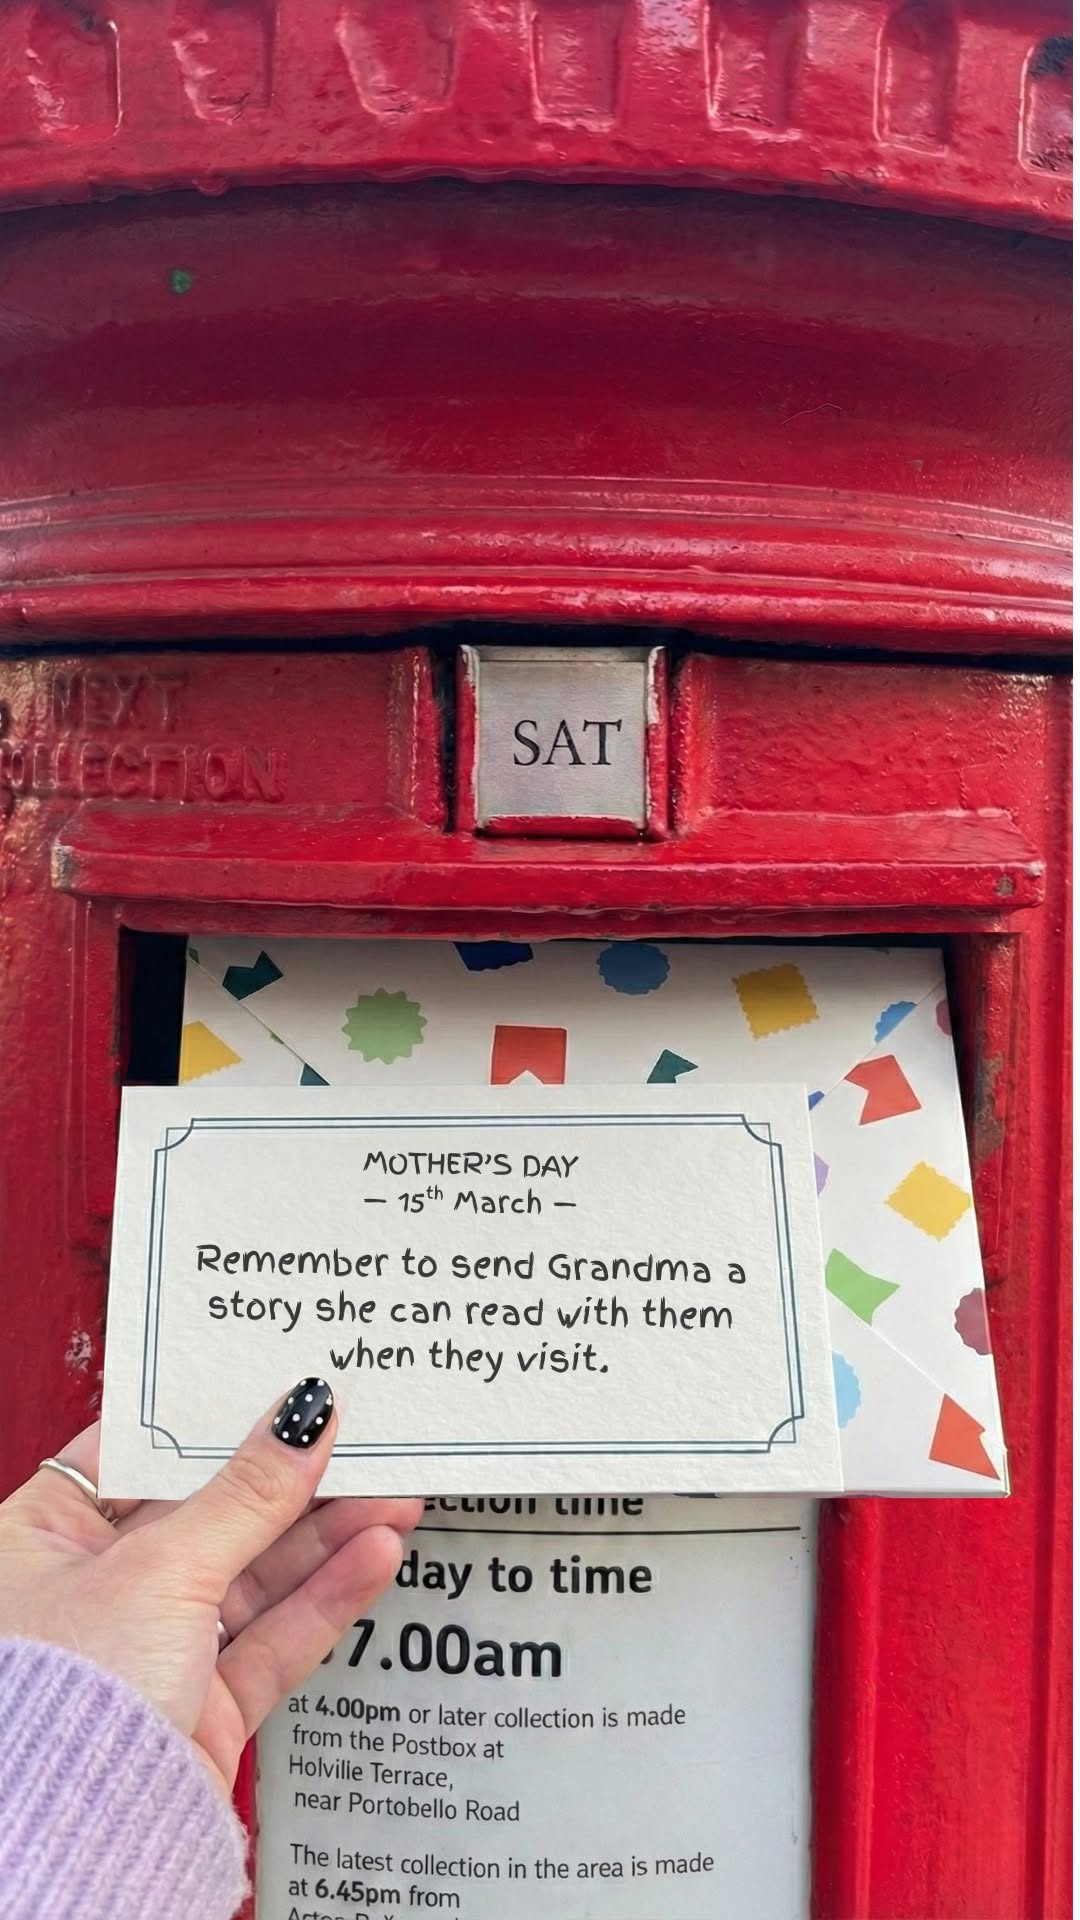 NEXT
COLLECTION
SAT
MOTHER'S DAY
— 15th March —
Remember to send Grandma a
story she can read with them
when they visit.
time
day to time
7.00am
at 4.00pm or later collection is made
from the Postbox at
Holville Terrace,
near Portobello Road
The latest collection in the area is made
at 6.45pm from